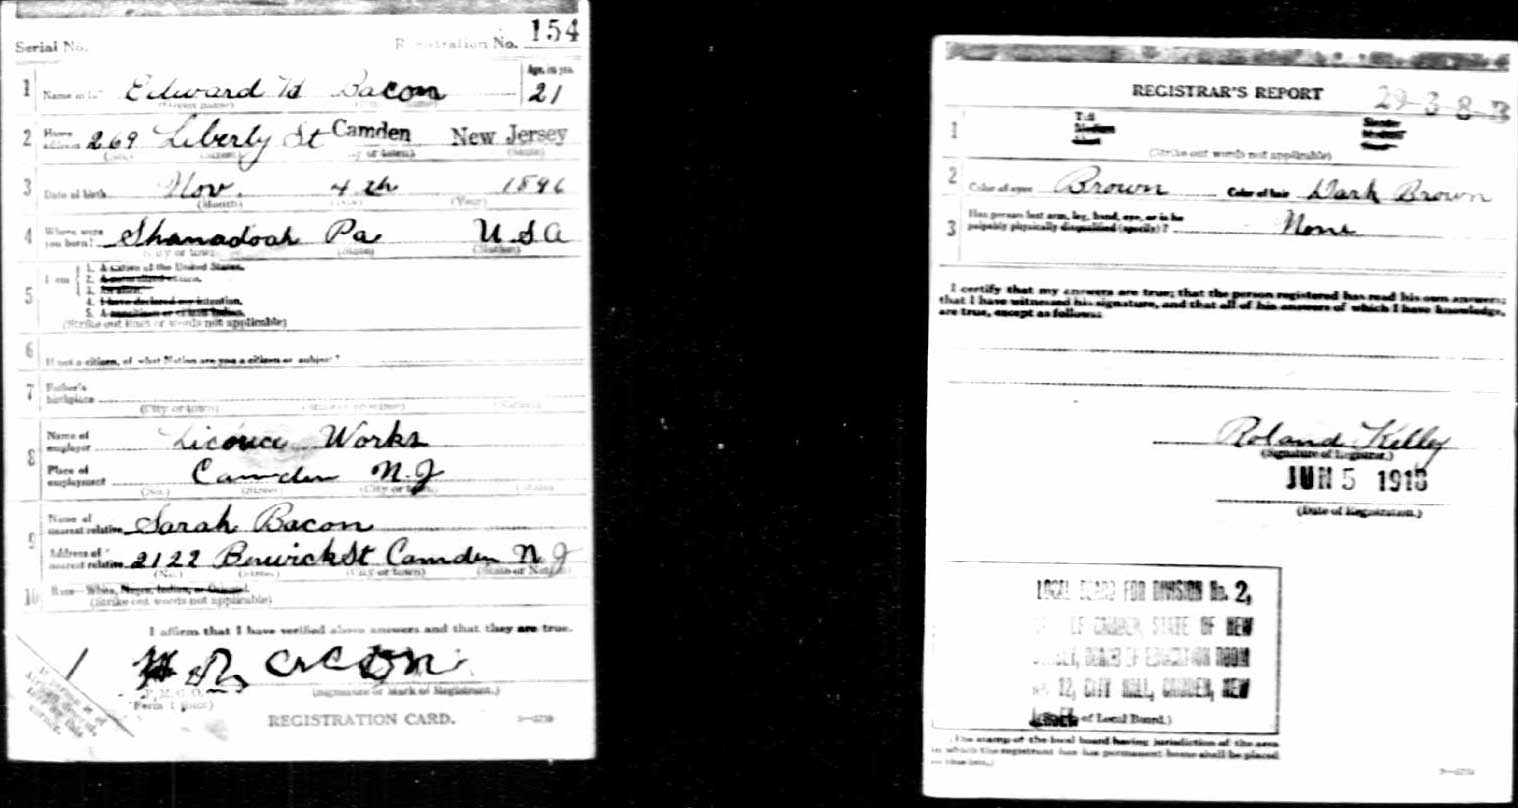 Serial No. Registration No. 154
1 Name in full Edward H Bacon Age, in yrs. 21
2 Home address 269 Liberty St Camden New Jersey
(No.) (Street) (City or town) (State)
3 Date of birth Nov. 4th 1896
(Month) (Day) (Year)
4 Where were you born? Shanadoah Pa U S A
(City or town) (State) (Nation)
5 I am
1. A native of the United States.
2. A naturalized citizen.
3. An alien.
4. I have declared my intention.
5. A noncitizen or citizen Indian.
(Strike out lines or words not applicable)
6 If not a citizen, of what Nation are you a citizen or subject?
7 Father's birthplace
(City or town) (State or province) (Nation)
8 Name of employer Licorice Works
Place of employment Camden N.J
(No.) (Street) (City or town) (State)
9 Name of nearest relative Sarah Bacon
Address of nearest relative 2122 Berwick St Camden N J
(No.) (Street) (City or town) (State or Nation)
10 Race—White, Negro, Indian, or Oriental.
(Strike out words not applicable)
I affirm that I have verified above answers and that they are true.
Bacon
P. M. G. O.
Form 1 (blue)
(Signature or Mark of Registrant.)
REGISTRATION CARD.
REGISTRAR'S REPORT
29-3-8
1 Tall Slender
Medium Medium
Short Stout
(Strike out words not applicable)
2 Color of eyes Brown Color of hair Dark Brown
3 Has person lost arm, leg, hand, eye, or is he
palpably physically disqualified (specify)? None
I certify that my answers are true; that the person registered has read his own answers;
that I have witnessed his signature, and that all of his answers of which I have knowledge,
are true, except as follows:
Roland Kelley
(Signature of Registrar.)
JUN 5 1918
(Date of Registration.)
LOCAL BOARD FOR DIVISION No. 2,
OF CAMDEN, STATE OF NEW
JERSEY, BOARD OF EDUCATION ROOM
No. 12, CITY HALL, CAMDEN, NEW
JERSEY of Local Board.)
(The stamp of the local board having jurisdiction of the area
in which the registrant has his permanent home shall be placed
in this box.)